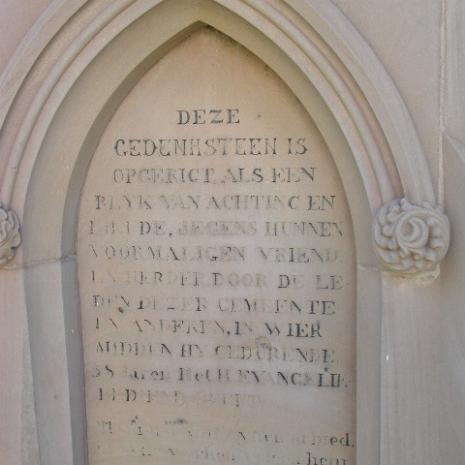 DEZE
GEDENKSTEEN IS
OPGERIGT, ALS EEN
BLYK VAN ACHTING EN
LIEFDE, JEGENS HUNNEN
VOORMALIGEN VRIEND,
EN HERDER, DOOR DE LE-
DEN DEZER GEMEENTE
EN ANDEREN, IN WIER
MIDDEN HY GEDURENDE
38 Jaren Het H. EVANGELIE
BEDIEND HEEFT